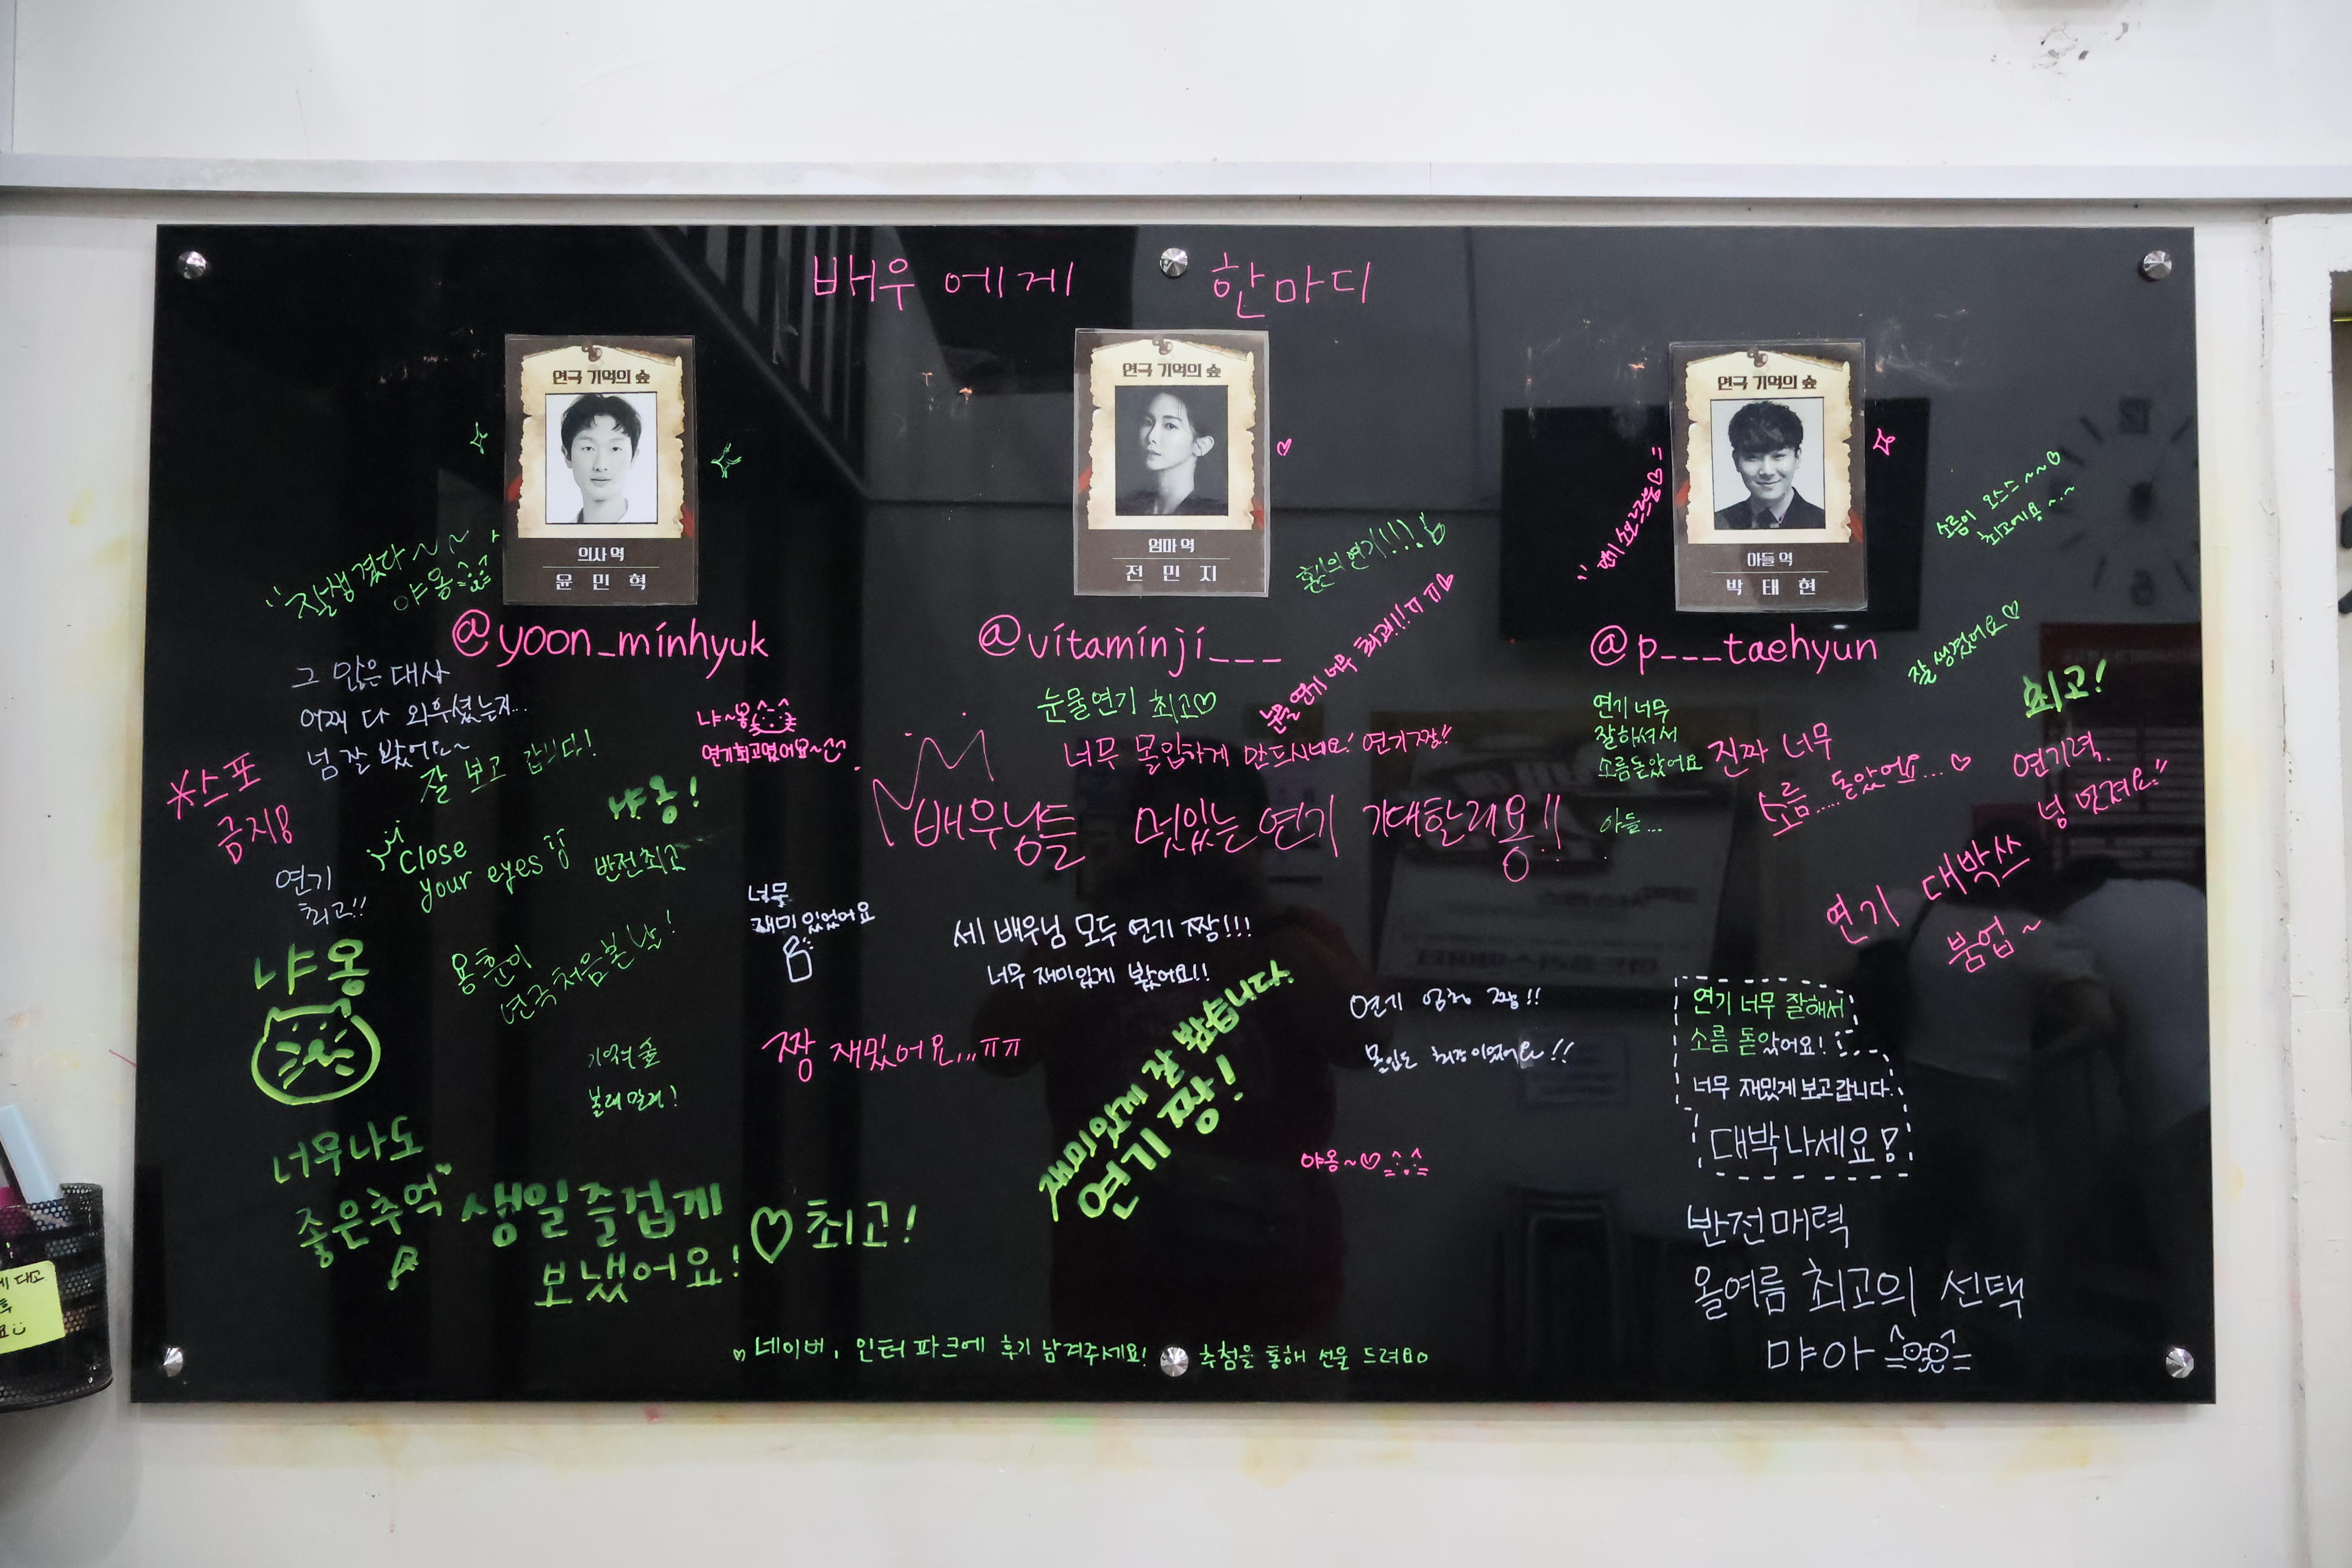 배우에게 한마디
연극 기억의 숲
의사 역
윤 민 혁
@yoon_minhyuk
연극 기억의 숲
엄마 역
전 민 지
@vitaminji___
연극 기억의 숲
아들 역
박 태 현
@p___taehyun
잘생겼다~~
야옹
그 많은 대사
어째 다 외우셨는지...
넘 잘 봤어요~
잘 보고 갑니다!
*스포
금지!
냐~옹
연기최고였어요~
냐옹!
Close
your eyes
반전최고
연기
최고!!
냐옹
용훈이
연극처음본날!
기억의 숲
볼래말래!
너무나도
좋은추억
생일즐겁게
보냈어요!
♡최고!
너무
재미있었어요
짱 재밌어요...ㅠㅠ
혼신의연기!!!!
눈물 연기 너무 최고!!!ㅠㅠ
눈물연기 최고♡
너무 몰입하게 만드시네요! 연기짱!!
배우님들 멋있는연기 기대할래용!!
세 배우님 모두 연기 짱!!!
너무 재미있게 봤어요!!
재미있게 잘 봤습니다.
연기 짱!
연기 엄청 짱!!
몰입도 최강이었어요!!
야옹~♡
소름이 오스스~~♡
최고에용~.~
잘생겼어요♡
최고!
연기 너무
잘하셔서
소름돋았어요
아들...
진짜 너무
소름.... 돋았어요...♡
연기력.
넘 멋져요!!
연기 대박쓰
붐업~
연기 너무 잘해서
소름 돋았어요!
너무 재밌게보고갑니다.
대박나세요!
반전매력
올여름 최고의 선택
먀아
♡네이버, 인터파크에 후기 남겨주세요! 추첨을 통해 선물 드려요